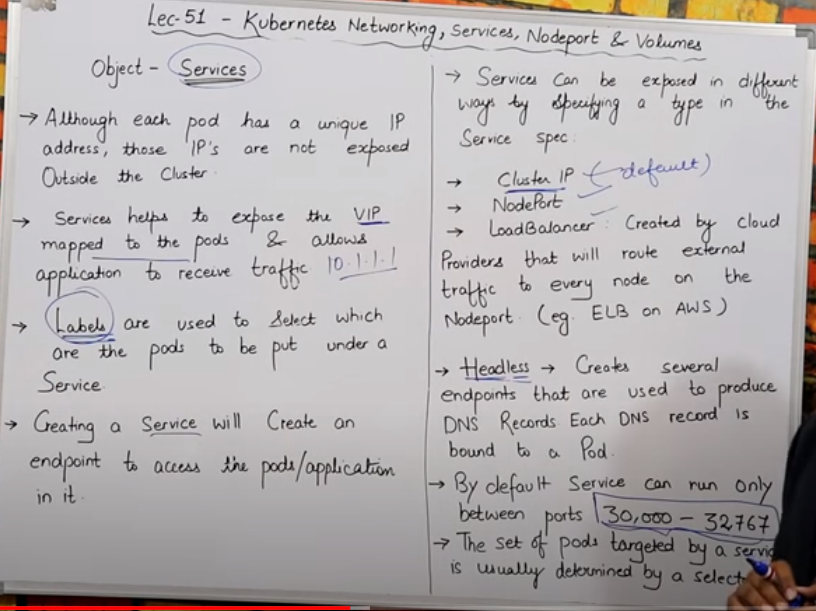 Lec-51 - Kubernetes Networking, Services, Nodeport & Volumes
Object - Services
→ Although each pod has a unique IP
address, those IP's are not exposed
Outside the Cluster.
→ Services helps to expose the VIP
mapped to the pods & allows
application to receive traffic 10.1.1.1
→ Labels are used to Select which
are the pods to be put under a
Service.
→ Creating a Service will Create an
endpoint to access the pods/application
in it.
→ Services Can be exposed in different
ways by specifying a type in the
Service spec:
→ Cluster IP (default)
→ NodePort
→ LoadBalancer: Created by cloud
Providers that will route external
traffic to every node on the
Nodeport. (eg. ELB on AWS)
→ Headless → Creates several
endpoints that are used to produce
DNS Records Each DNS record is
bound to a Pod.
→ By default Service can run only
between ports 30,000 - 32767
→ The set of pods targeted by a servic
is usually determined by a select